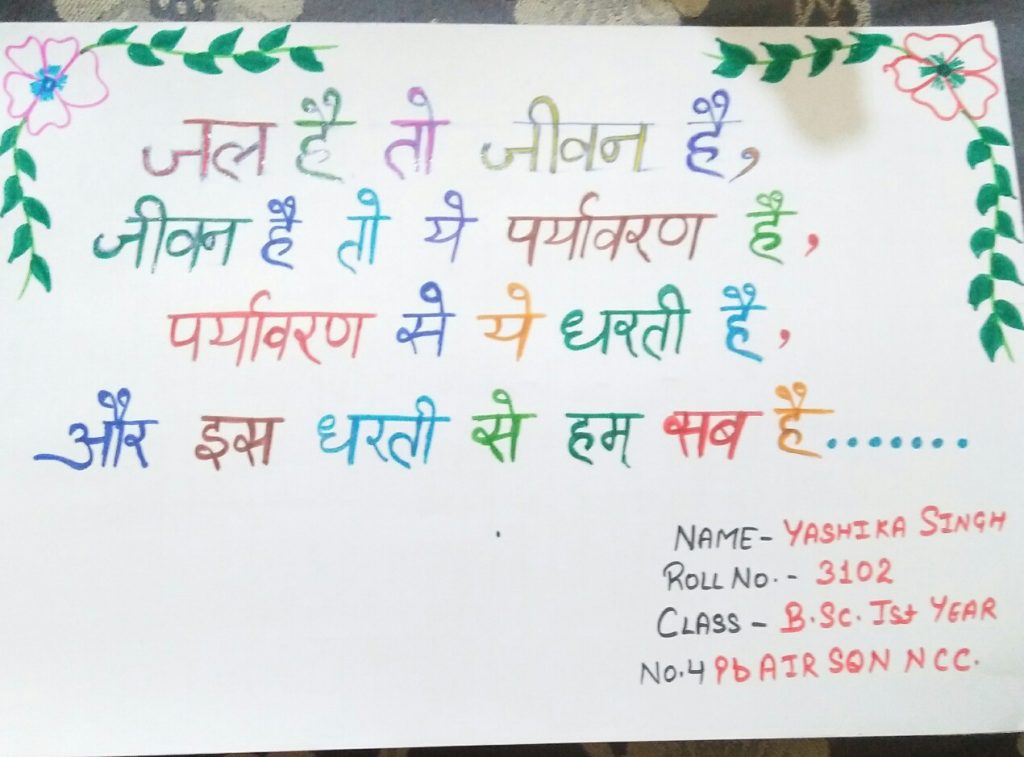 जल है तो जीवन है,
जीवन है तो ये पर्यावरण है,
पर्यावरण से ये धरती है,
और इस धरती से हम् सब है.......
NAME- YASHIKA SINGH
ROLL NO.- 3102
CLASS - B.Sc. Ist YEAR
No.4 Pb AIR SQN NCC.